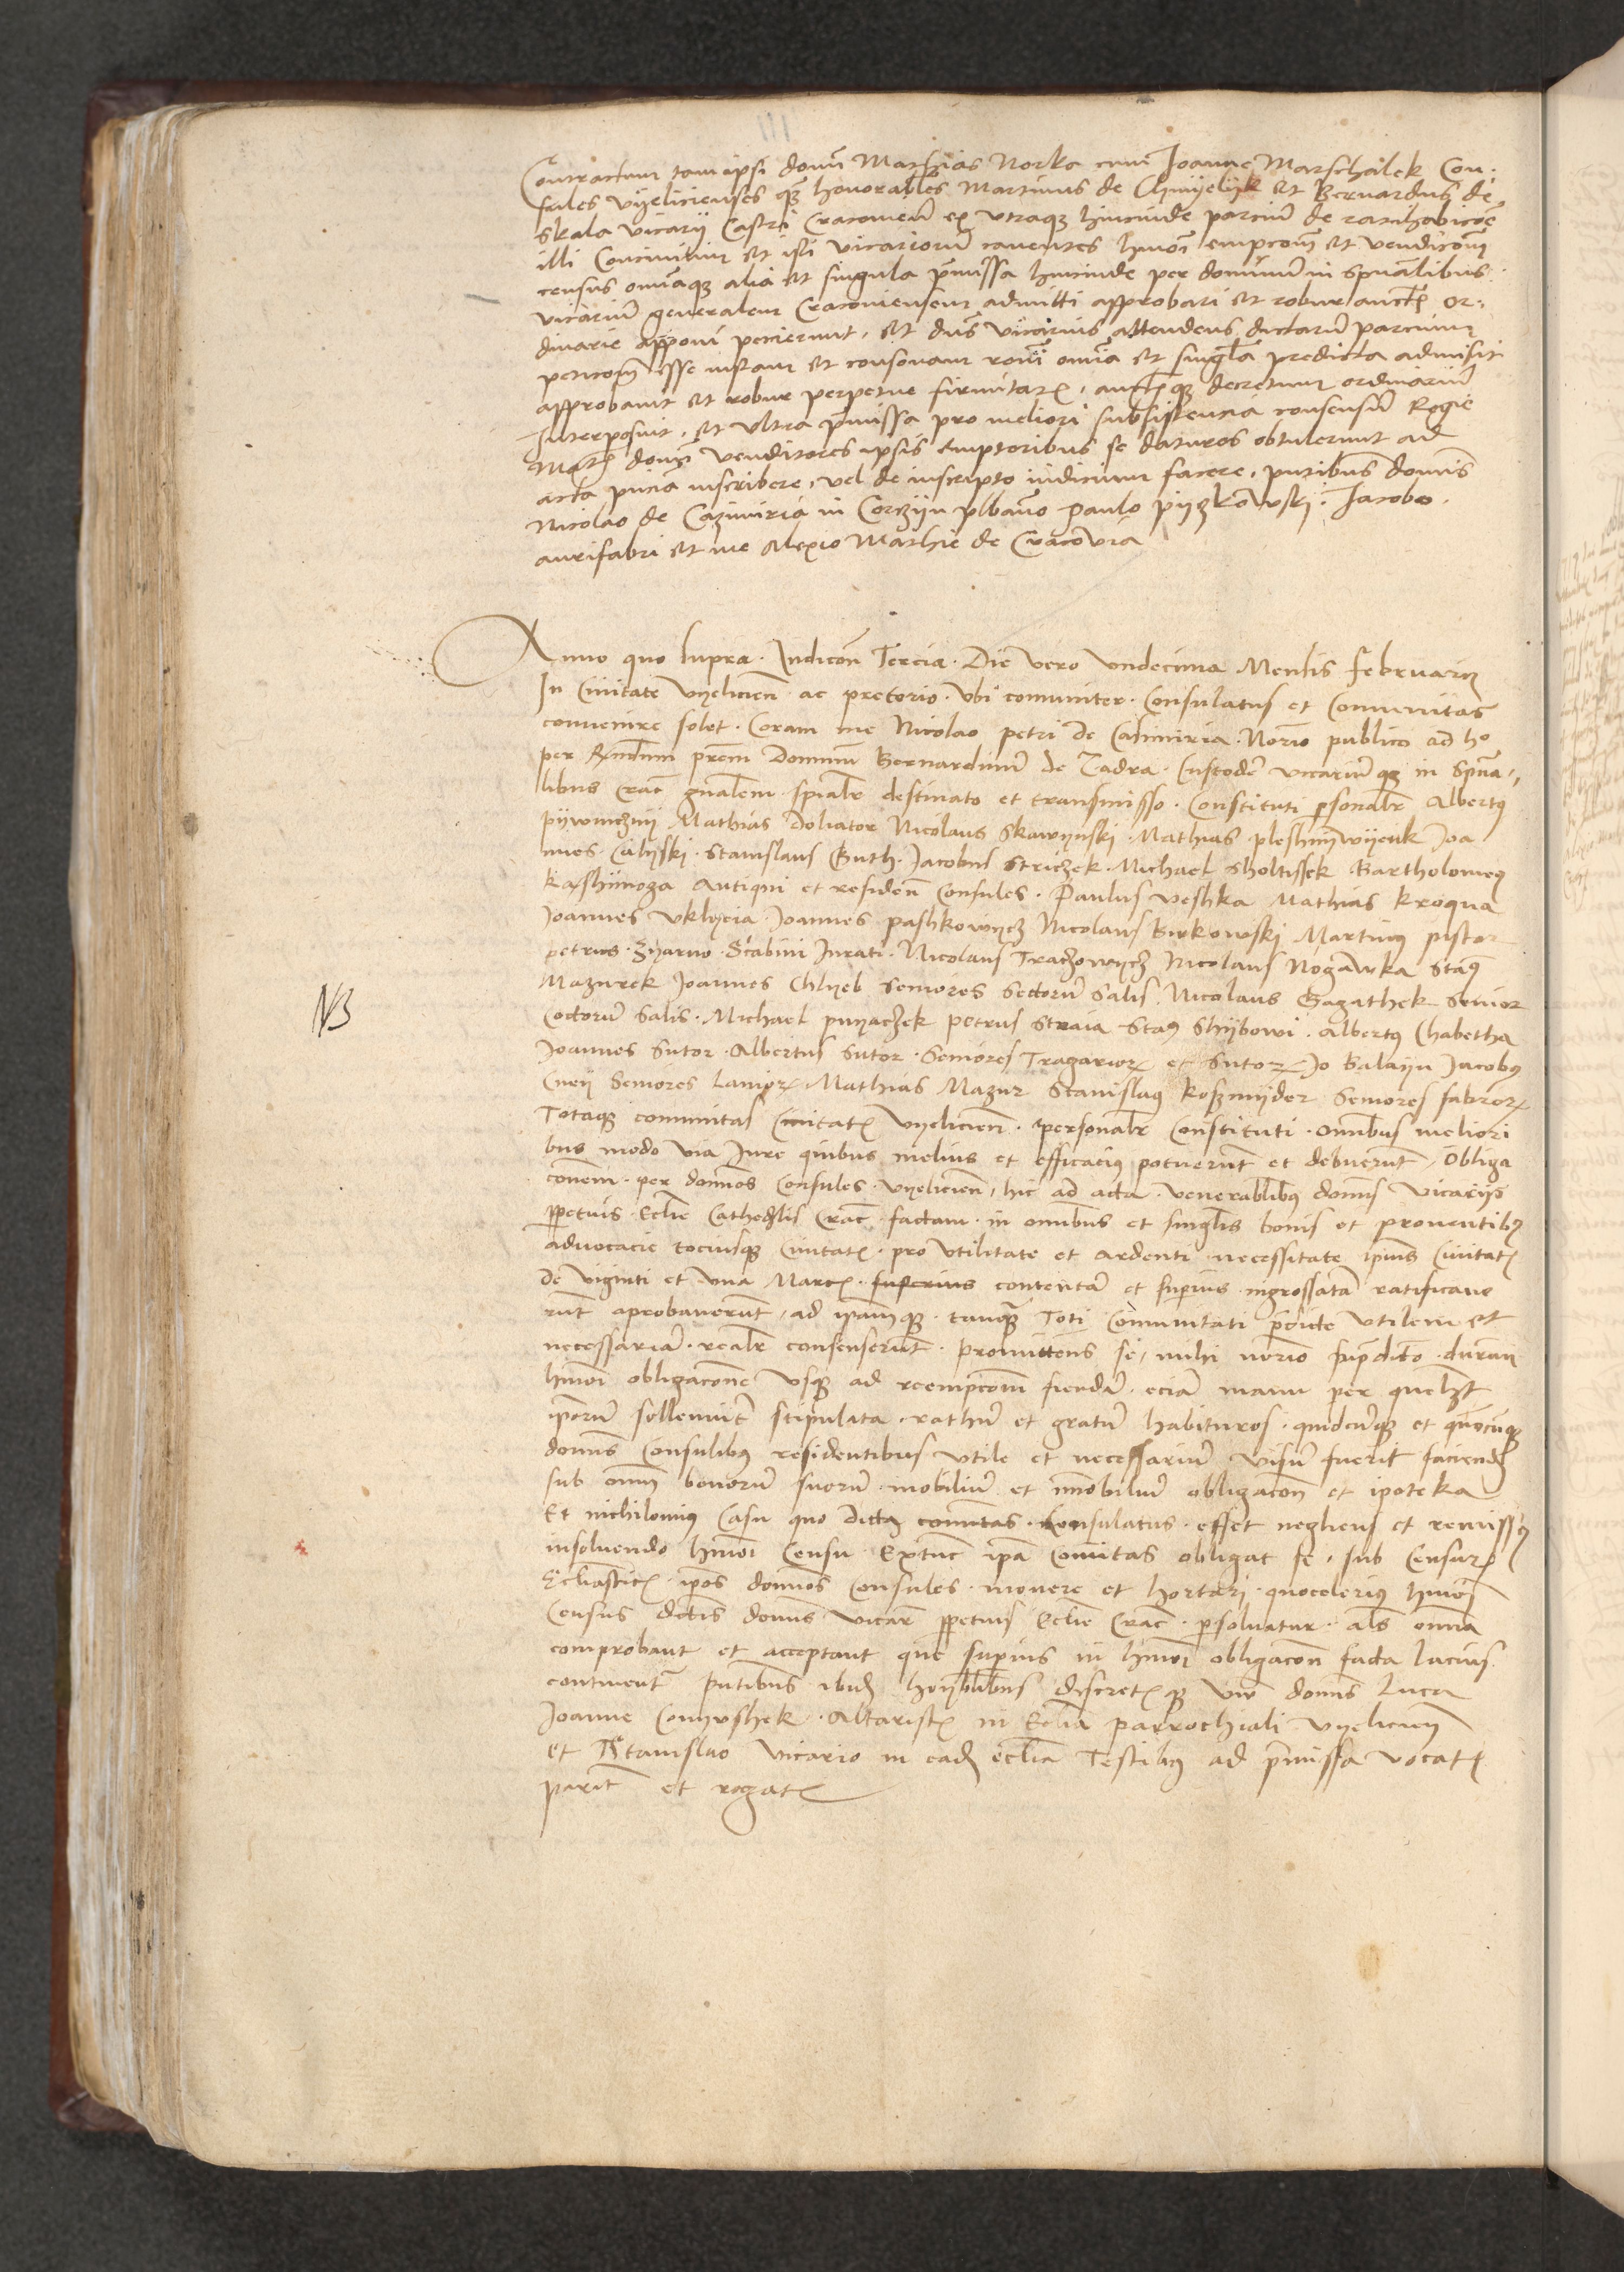 Contractum tam ipsi domi Mathias Norka cum Joanne Marschalek Con-
sules vyelicienses qȝ honorabiles Martinus de Chmyelyk et Bernardus de
Skala vicarij Castri Cracovien ex utraqȝ hincinde parcium de ratihabicōe
illi Concivium et isti vicariorū caventes hmōi empcoīs et vendicoīs
census omīaqȝ alia et singula pmissa hincinde per dominū in spūalibus
vicariū generalem Cracoviensem admitti approbari et robur auctēs or-
dinarie apponi pecierunt, et dns vicarius attendens dictarū parcium
peticoēm esse iustam et consonam roni omīa et singula predicta admisit
approbavit et robur perpetue firmitatis, auctēqȝ decretum ordinariū
Interposuit, et ultra pmissa pro meliori subsistencia consensū Regie
Mtīs domi venditores ipsis emptoribus se daturos obtulerunt ad
acta pncia inscribere, vel de inscripto indicium facere, pntibus domīs
Nicolao de Cazimiria in Corczyn plbano Paulo pyzkowski Jacobo
aurifabri et me Alexio Mathie de Cracovia
Anno quo supra. Indicoē Tercia. Die vero undecima Mensis februarij
In Civitate vyelicien ac pretorio. vbi comuniter. Consulatus et Comunitas
convenire solet. Coram me Nicolao petri de Casimiria. Norio publico ad hᵒ
per Rndum prem Dominum Bernardinū de Zadra. Custodē vicariū qȝ in spūa-
libus Crac gnalem spialr destinato et transmisso. Constituti psonalr Albertus
pywniczny Mathias Doliator Nicolaus Skawynski. Mathias pleshnywyenk Joa
nnes Calyski. Stanislaus Guth. Jacobus Striczek. Michael Sholtissek Bartholomeus
Kashynoga Antiqui et residen Consules. Paulus veshka Mathias Kroqua
Joannes Uklyeia Joannes pashkowycz Nicolaus Birkowski Martinus pistor
petrus Zyarno Scabini Jurati. Nicolaus Traczowycz Nicolaus Nogawka Stas
Mazurek Joannes Chlyeb Seniores Sectorū Salis. Nicolaus Gagathek Senior
NB
Coctorū Salis. Michael puyaczek petrus Straia Stas Shybowi. Albertus Chabetha
Joannes Sutor. Albertus Sutor. Seniores Tragarior et Sutor Jo Galayn Jacobus
Cney Seniores Lanior Mathias Mazur Stanislaus Koszmyder Seniores fabror
Totaqȝ comunitas Civitatis vyelicien. personalr Constituti. Omībus meliori
bus modo via Jure quibus melius et efficacius potuerunt et debuerunt, Obliga
conem. per domnos Consules vyelicien, hic ad acta. venerablibus domīs vicarijs
ppetuis Eclie Cathedlis Crac factam in omībus et singlis bonis et proventibus
advocacie tociusqȝ Civitatis. pro utilitate et ardenti necessitate ipius Civitatis
De viginti et una Marcis. superius contentā et supius ingrossatā ratificave
runt aprobaverunt, ad ipamqȝ. tanqȝ Toti Comunitati pdicte utilem et
necessariā. realr consenserunt. Promittens se, mihi norio supdicto. duran
hmōi obligacone usqȝ ad reempcoem fiendā. eciā manu per quelzt
ipsorū sollemnit stipulata. rathū et gratū habituros. quidcunqȝ et quocunqȝ
domīs Consulibus residentibus utile et necessariū visum fuerit faciendi
sub omī bonorū suorū mobiliū et immobiliū obligacoē et ipoteka
Et nichilomius Casu quo dicta comitas Consulatus. esset negliens et remissus
insolvendo hmōi Censu Extunc ipa Comitas obligat se, sub Censuris
Ecliasticis. ipos domnos Consules. movere et hortari. quocelerius hmōi
Census dictis domīs vicar ppetuis Eclie Crac. psolvatur. als omīa
comprobant et acceptant que supius in hmōi obligacoē facta lacius
continent pntibus ibid honblibus discretisqȝ vir domīs Luca
Joanne Comyrshek. Altaristis in Eclia parrochiali vyelicien
et Stanislao Vicario in eadē eclia Testibus ad pmissa vocatis
parit et rogatis